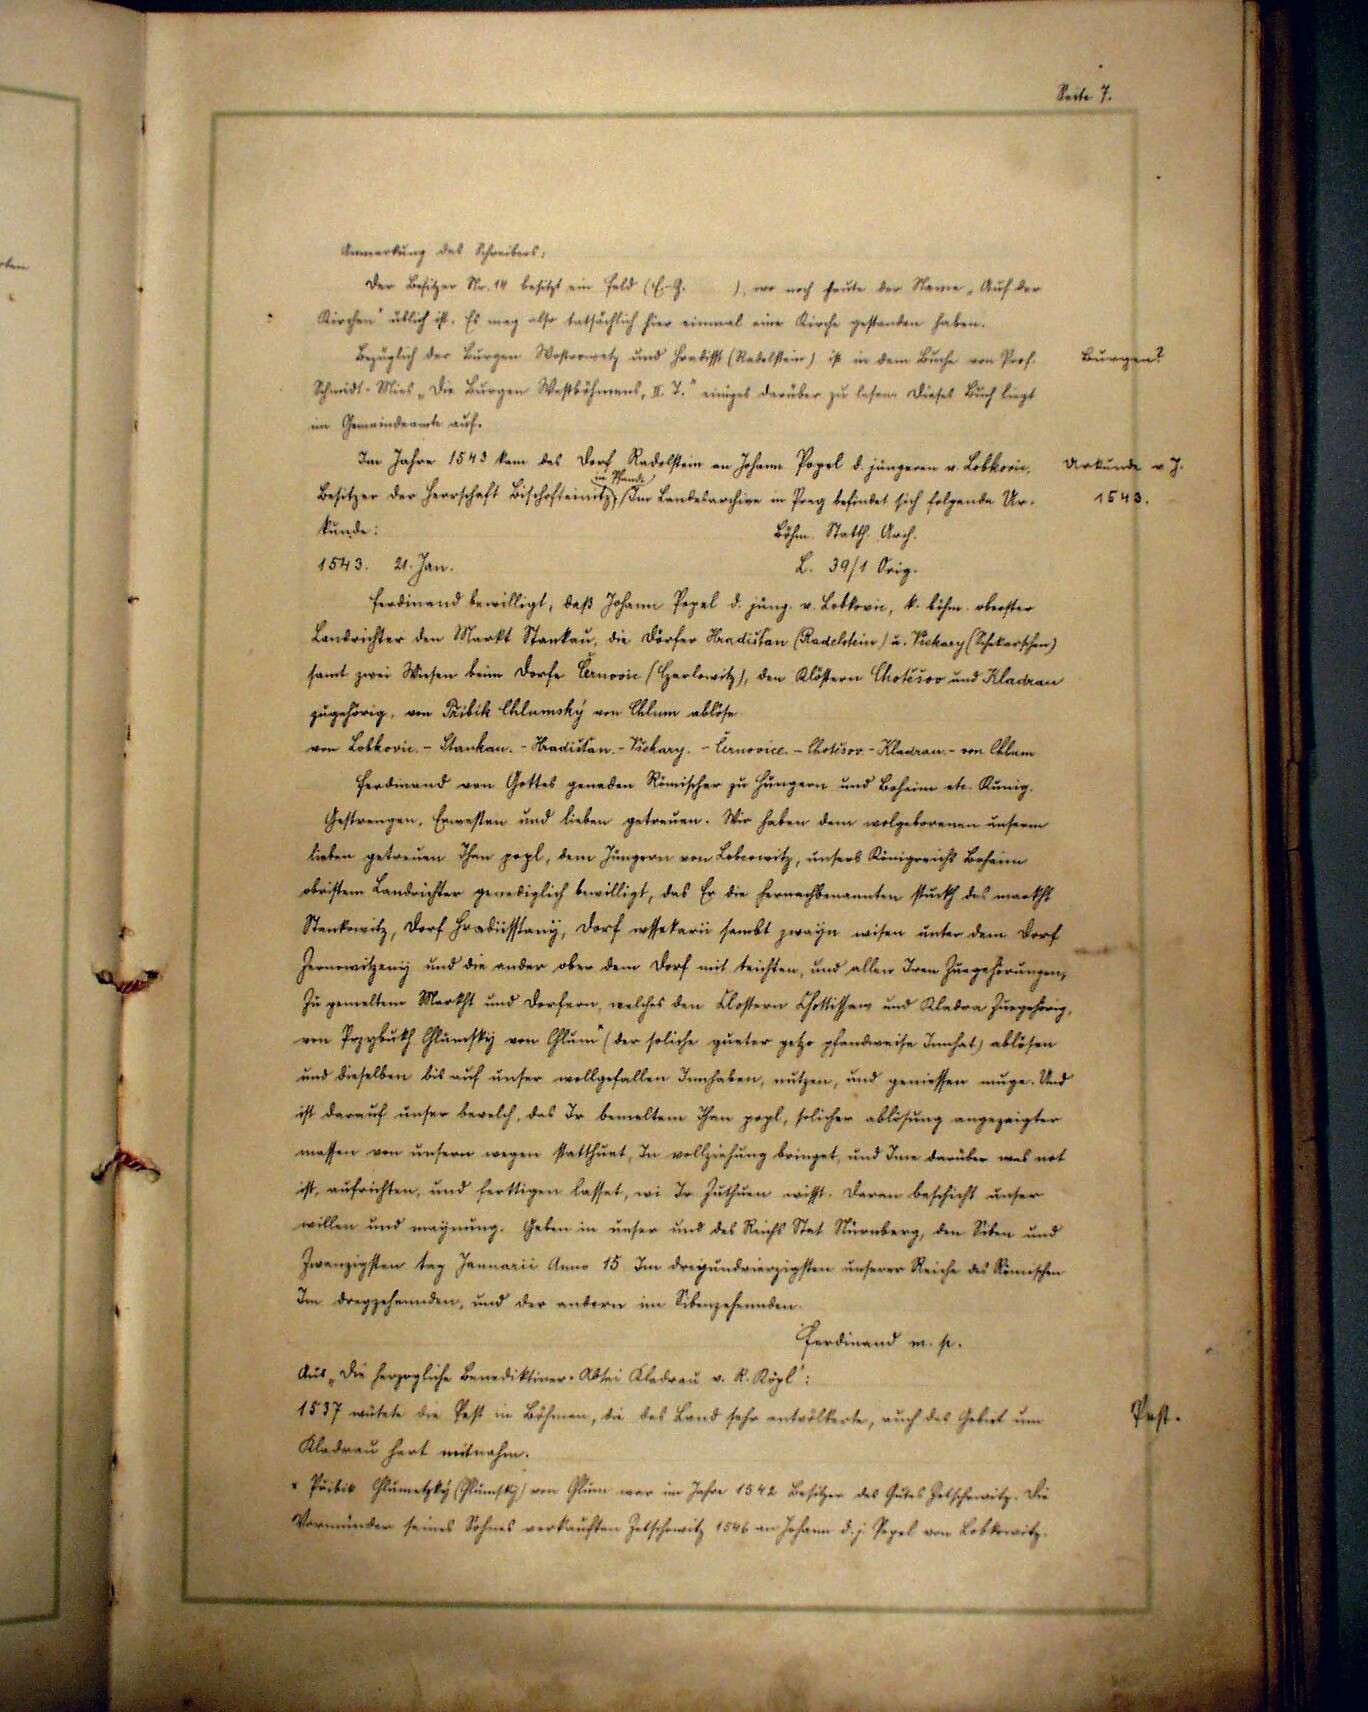 Seite 7.
Anmerkung des Schreibers:
Der Besitzer Nr. 14 besitzt ein Feld (E.-Z.      ), wo noch heute der Name „Auf der
Kirchen" üblich ist. Es mag also tatsächlich hier einmal eine Kirche gestanden haben.
Bezüglich der Burgen Wostrowetz und Hradisst (Radelstein) ist in dem Buche von Prof.
Burgen?
Schmidt-Mies „Die Burgen Westböhmens, II. T." einiges darüber zu lesen. Dieses Buch liegt
im Gemeindeamte auf.
Im Jahre 1543 kam das Dorf Radelstein an Johann Popel d. jüngeren v. Lobkovic,
Urkunde v. J.
1543.
in Pfande
Besitzer der Herrschaft Bischofteinitz. Im Landesarchive in Prag befindet sich folgende Ur-
kunde:
Böhm. Statth. Arch.
1543. 21. Jan.
L. 39/1 Orig.
Ferdinand bewilligt, daß Johann Popel d. jüng. v. Lobkovic, k. böhm. oberster
Landrichter den Markt Stankau, die Dörfer Hradišťan (Radelstein) u. Všekary (Schekarschen)
samt zwei Wiesen beim Dorfe Černovic (Zerlowitz), den Klöstern Chotěšov und Kladrau
zugehörig, von Přibik Chlumský von Chlum ablöse.
von Lobkovic. - Stankau. - Hradišťan. - Všekary. - Černovice. - Chotěšov. - Kladrau. - von Chlum
Ferdinand von Gottes genaden Römischer zu Hungern und Behaim etc. Kunig.
Gestrengen, Ernvesten und lieben getreuen. Wir haben dem wolgeborenen unserm
lieben getreuen Jhan popl, dem Jüngern von Lobcowitz, unsers Königreichs Behaim
obristem Landrichter genediglich bewilligt, das Er die hernachbenannten stuckh des markht
Stankowitz, Dorf Hradiisstany, Dorf wssekarii sambt zwayn wisen unter dem Dorf
Zernowitzeny und die ander ober dem Dorf mit teichten, und allen Iren Zuegehörungen,
Zu gemeltem Markht und Dorfern, welches den Clostern Chottissaw und Kladra Zuegehörig,
von Przybukh Chlumsky von Chlum* (der soliche gueter yetzo pfandweise Innhat) ablösen
und dieselben bis auf unser wollgefallen Innhaben, nutzen, und geniessen muge. Und
ist darauf unser bevelch, das Ir bemeltem Jhan popl, solicher ablösung angezaigter
massen von unsern wegen statthuet, In vollziehung bringet, und Ime darüber was not
ist, aufrichten, und ferttigen lasset, wi Ir Zuthuen wisst. Daran beschicht unser
willen und maynung. Geben in unser und des Reichs Stat Nürnberg, den Siben und
Zwanzigsten tag Januarii Anno 15 Im dreyundvierzigsten unserer Reiche des Römischen
Im dreyzehennden, und der andern im Sibenzehennden.
Ferdinand m. p.
Aus „Die herzogliche Benediktiner-Abtei Kladrau v. R. Köpl":
1537 wütete die Pest in Böhmen, die das Land sehr entvölkerte, auch das Gebiet um
Pest.
Kladrau hart mitnahm.
* Přibik Chlumetzký (Chlumský) von Chlum war im Jahre 1542 Besitzer des Gutes Zetschowitz. Die
Vormünder seines Sohnes verkauften Zetschowitz 1546 an Johann d. j. Popel von Lobkowitz.